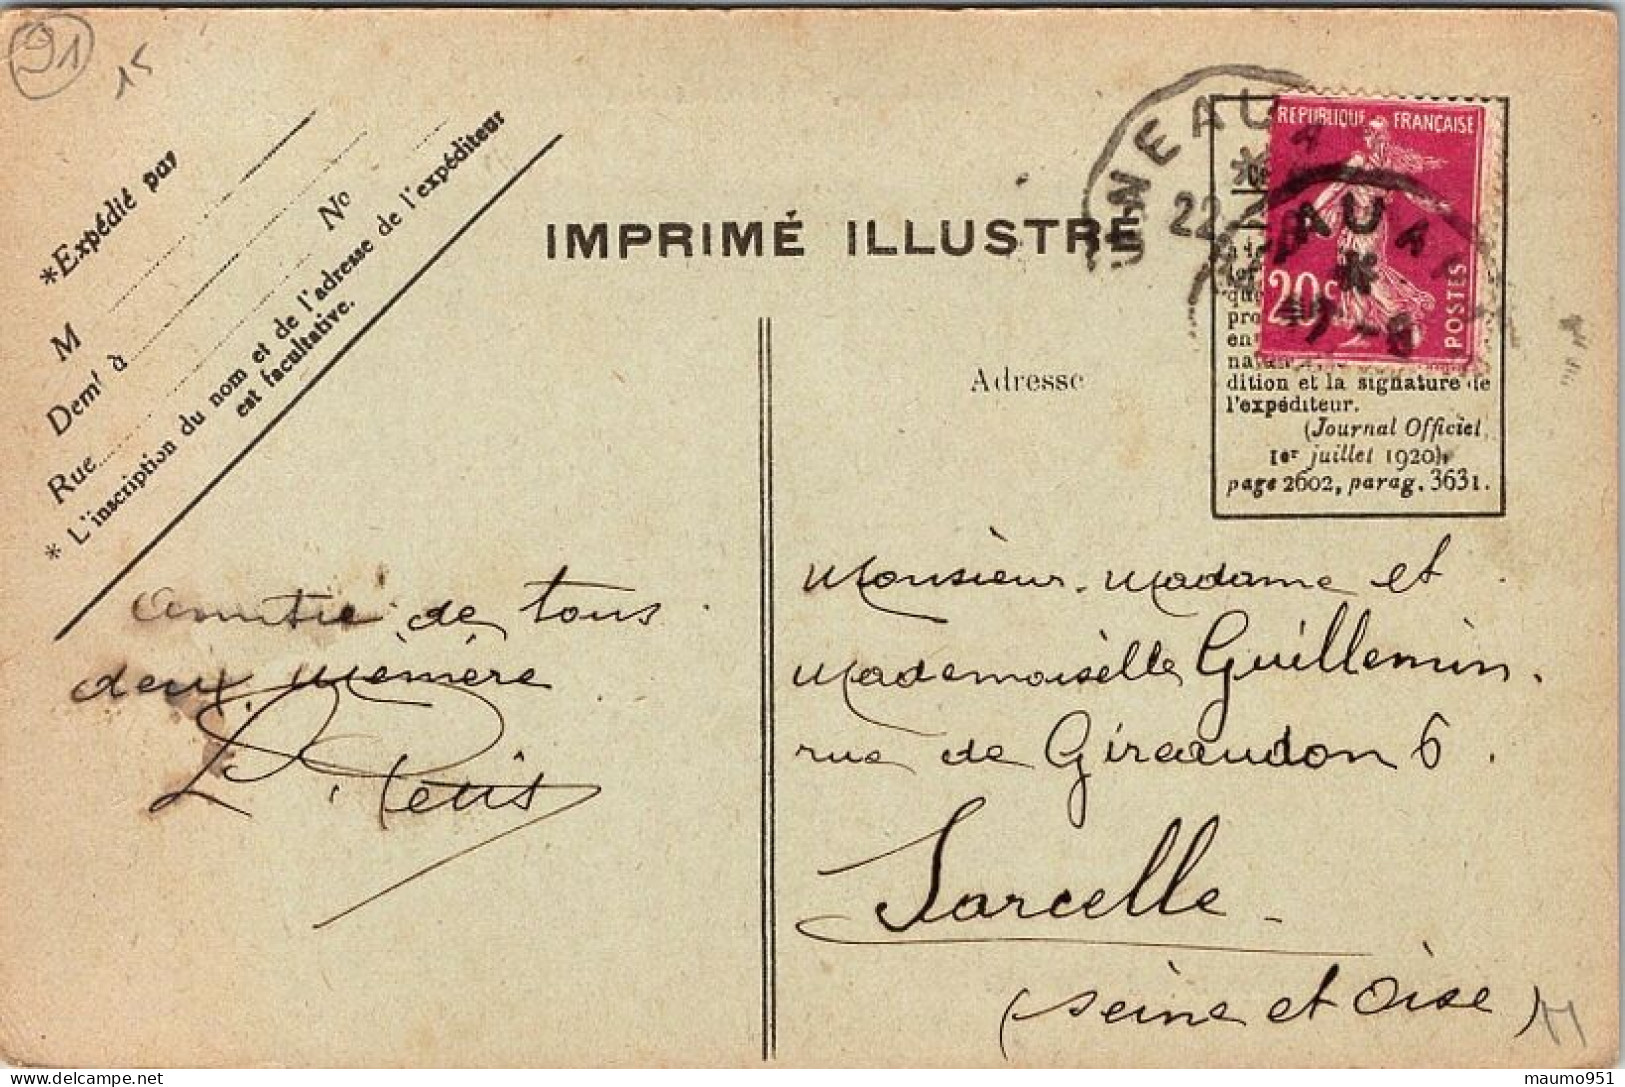 91
15
*Expédié par
M
Nº
Demt à
Rue
* L'inscription du nom et de l'adresse de l'expéditeur
est facultative.
IMPRIMÉ ILLUSTRÉ
REPUBLIQUE FRANÇAISE
20c
POSTES
NEAU A
22
AU A
17 - 8
Adresse
dition et la signature de
l'expéditeur.
(Journal Officiel,
1er juillet 1920),
page 2602, parag. 3631.
Amitié de tous
deux Mémère
L. Petit
Monsieur. Madame et
Mademoiselle Guillemin.
rue de Giraudon 6.
Sarcelle
(Seine et Oise)
maumo951